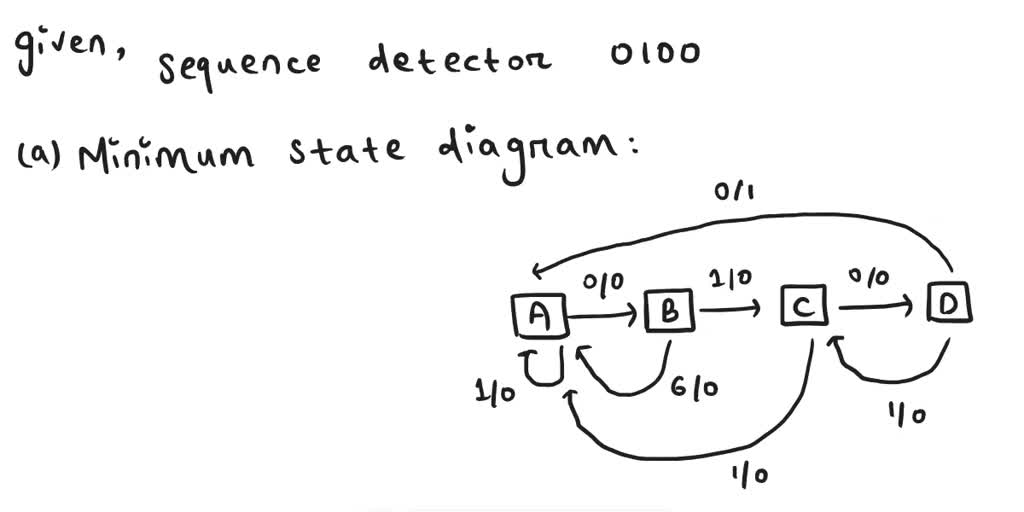 given, sequence detector 0100
(a) Minimum state diagram:
0/1
0/0 1/0 0/0
A B C D
1/0 6/0 1/0
1/0